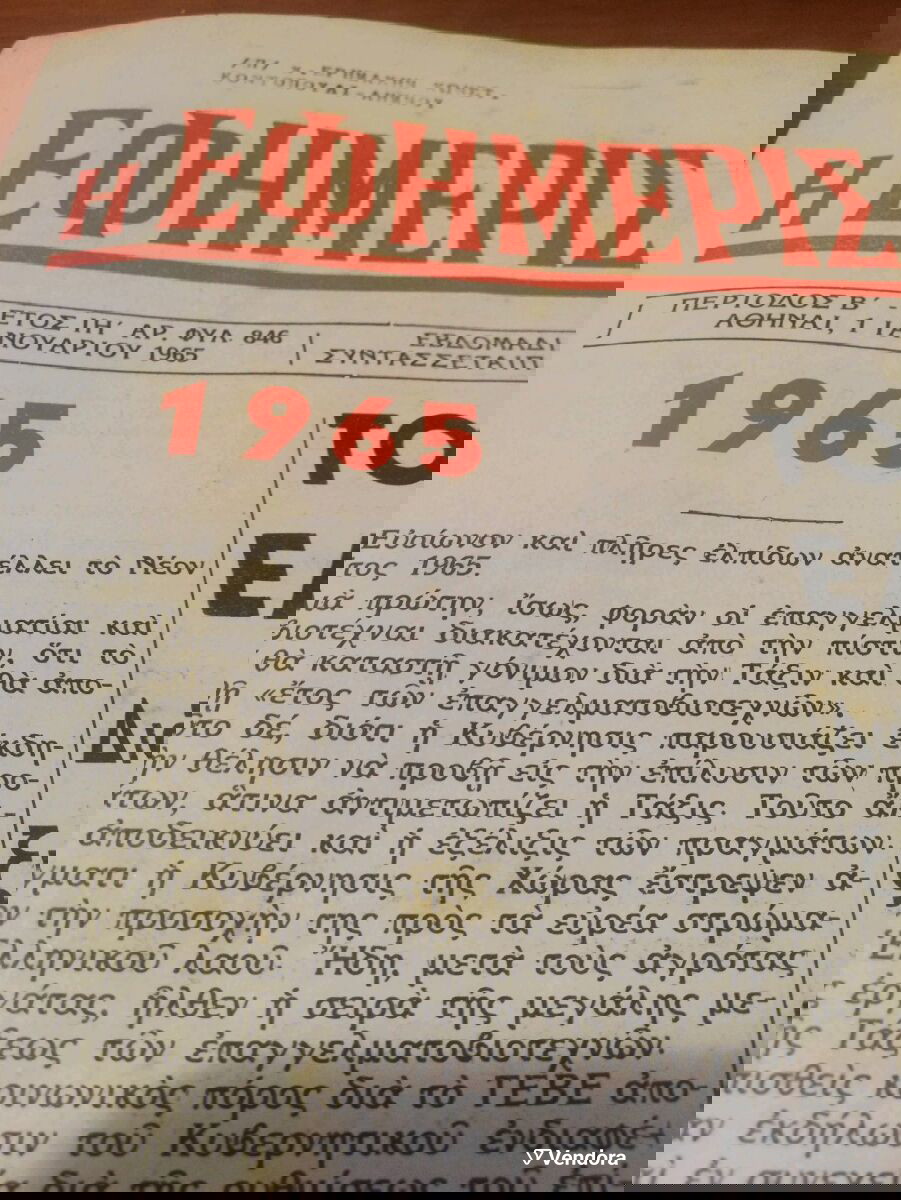 Η ΕΦΗΜΕΡΙΣ
ΕΤΟΣ ΙΗ΄ ΑΡ. ΦΥΛ. 846
ΝΟΥΑΡΙΟΥ 1965
ΕΒΔΟΜΑΔΙ
ΣΥΝΤΑΣΣΕΤΑΙ
ΠΕΡΙΟΔΟΣ Β΄
ΑΘΗΝΑΙ, 1 Ι
1965
196
ΤΟ
Εὐοίωνον καὶ πλῆρες ἐλπίδων ἀνατέλλει τὸ Νέον
τος 1965.
ιὰ πρώτην, ἴσως, φορὰν οἱ ἐπαγγελματίαι καὶ
βιοτέχναι διακατέχονται ἀπὸ τὴν πίστιν, ὅτι τὸ
θὰ καταστῇ γόνιμον διὰ τὴν Τάξιν καὶ θὰ ἀπο-
ῇ «ἔτος τῶν ἐπαγγελματοβιοτεχνῶν».
το δέ, διότι ἡ Κυβέρνησις παρουσιάζει ἐκδη-
ην θέλησιν νὰ προβῇ εἰς τὴν ἐπίλυσιν τῶν προ-
των, ἅτινα ἀντιμετωπίζει ἡ Τάξις. Τοῦτο ἄλ-
ἀποδεικνύει καὶ ἡ ἐξέλιξις τῶν πραγμάτων.
γματι ἡ Κυβέρνησις τῆς Χώρας ἔστρεψεν ἀ-
ν τὴν προσοχήν της πρὸς τὰ εὐρέα στρώμα-
Ἑλληνικοῦ λαοῦ. Ἤδη, μετὰ τοὺς ἀγρότας
ἐργάτας, ἦλθεν ἡ σειρὰ τῆς μεγάλης με-
Τάξεως τῶν ἐπαγγελματοβιοτεχνῶν.
κοινωνικὸς πόρος διὰ τὸ ΤΕΒΕ ἀπο-
σιν τοῦ Κυβερνητικοῦ ἐνδιαφέ-
διὰ τῆς ρυθμίσεως τοῦ
Vendora